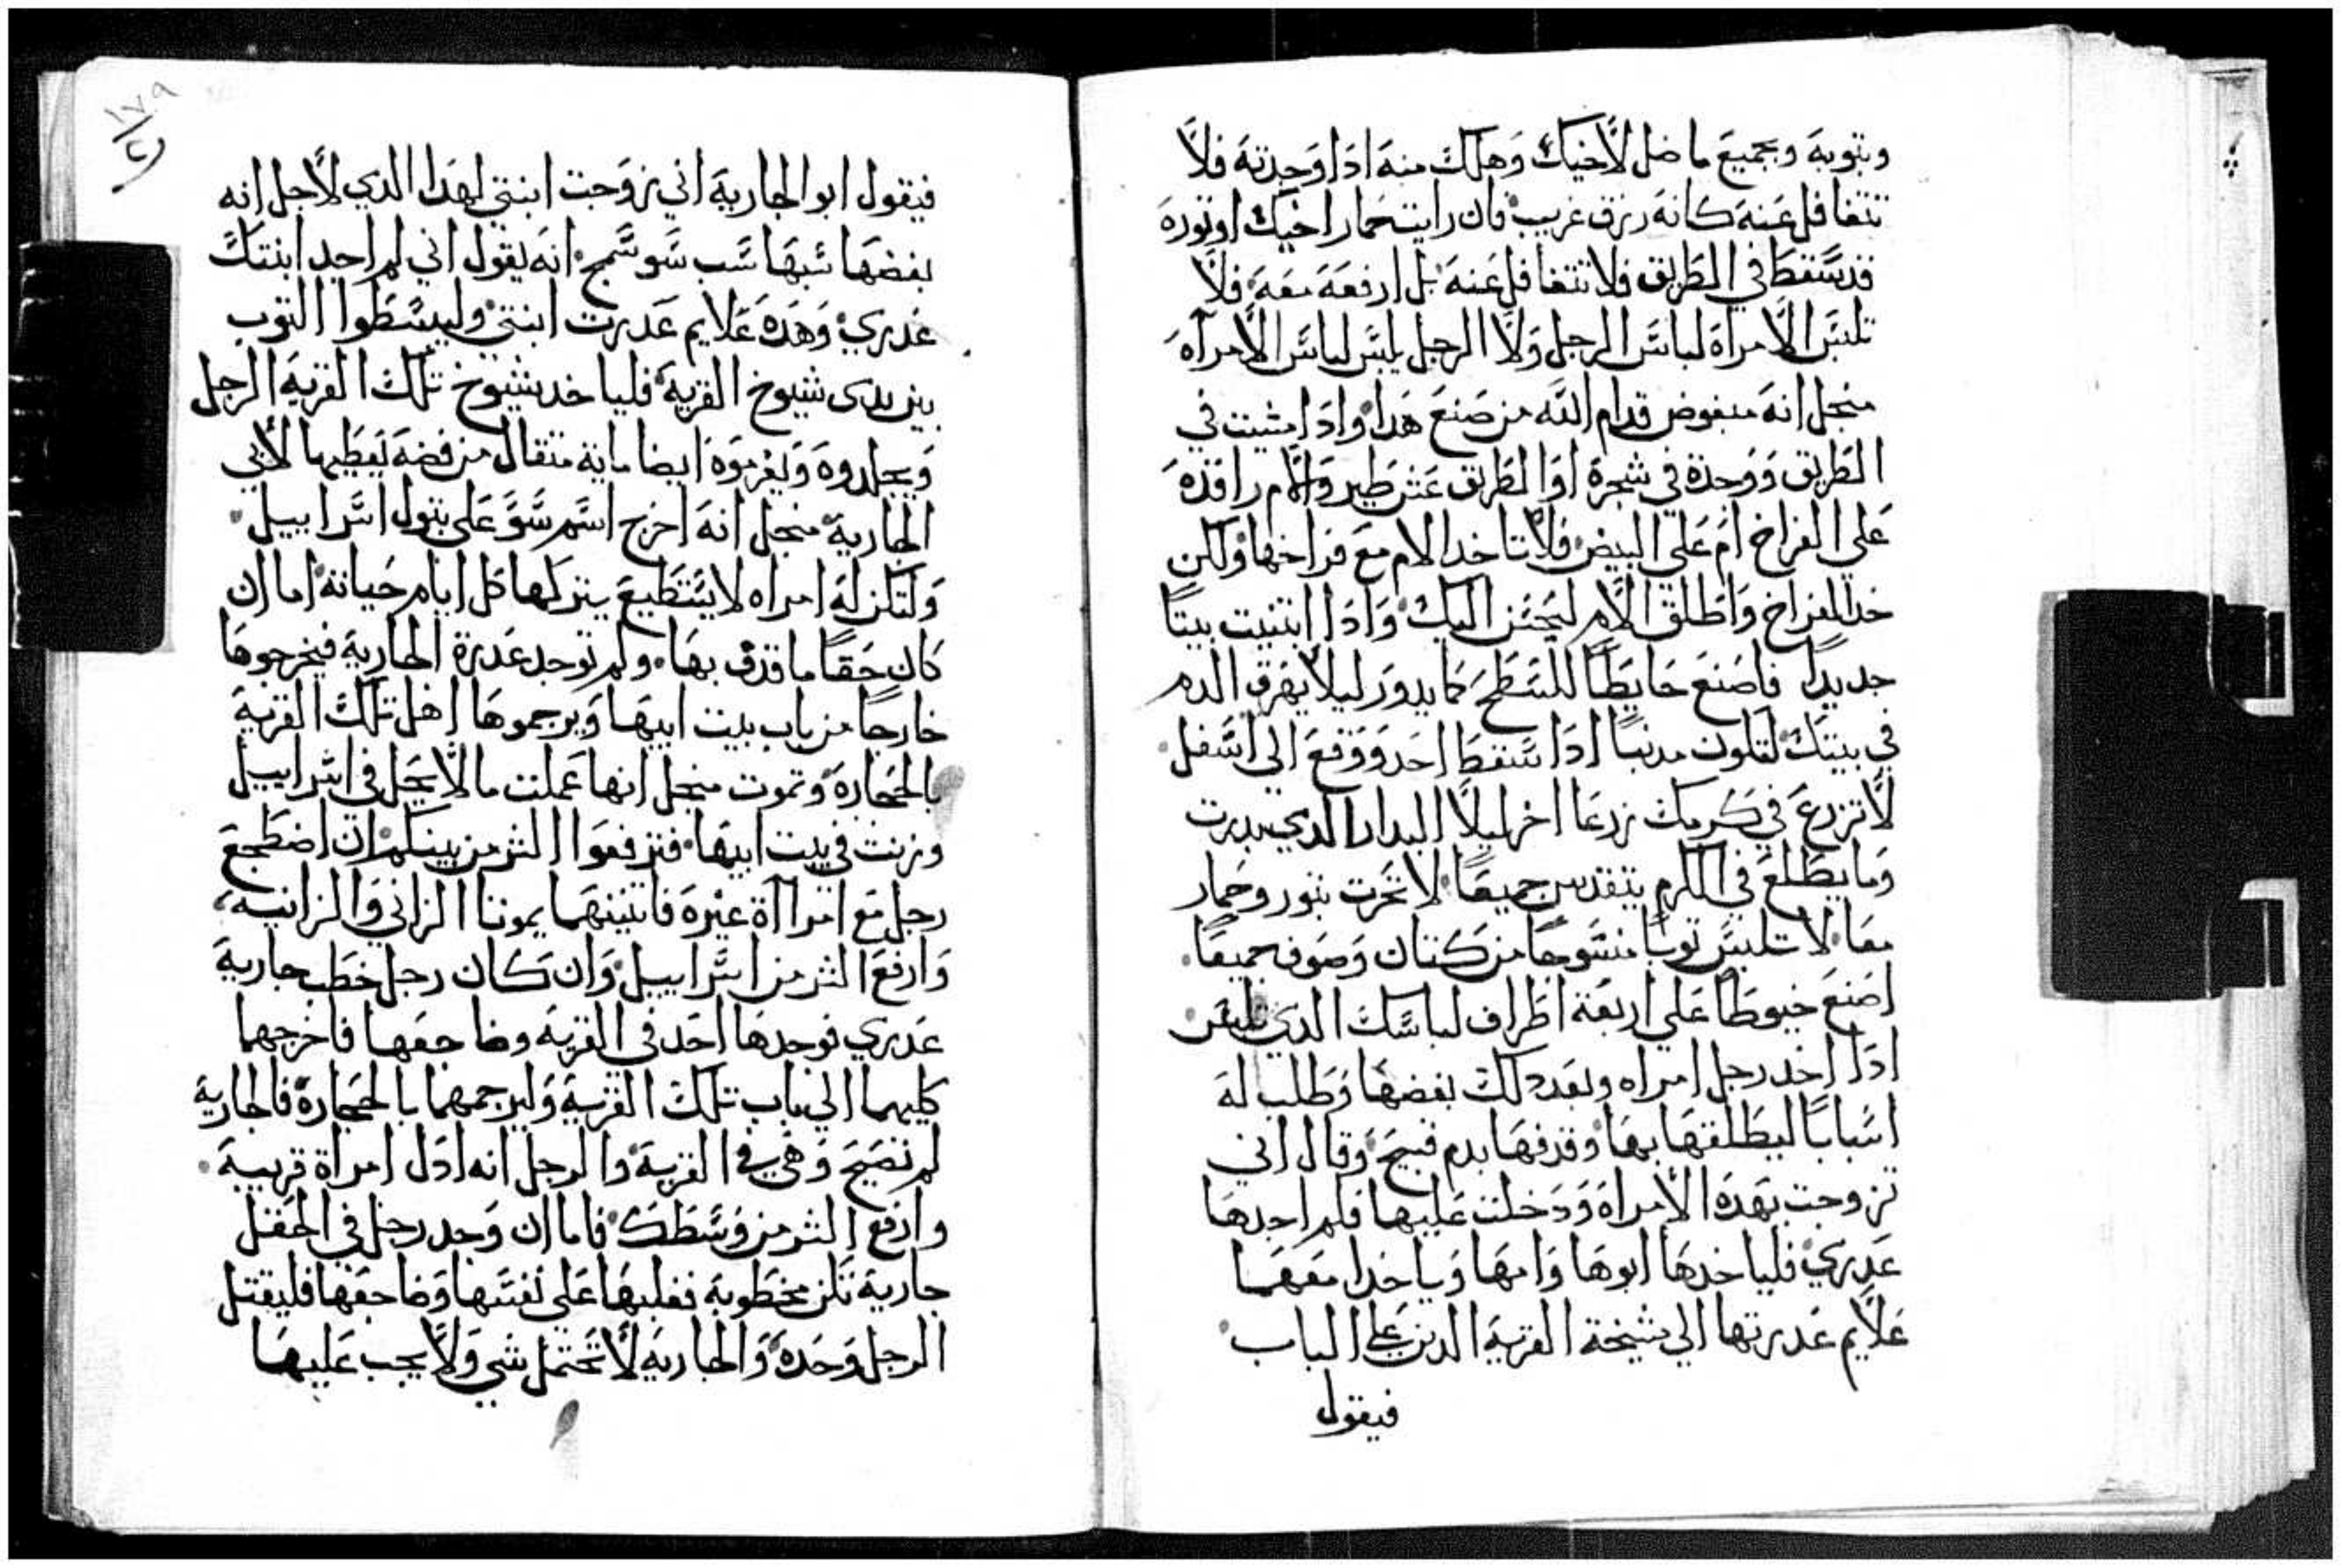 وبتوبه وبجميع ما ضل لأخيك وهلك منه ادا وجدته فلا
تتغافل عنه كانه رزق غريب فان رايت حمار اخيك او توره
قد سقط في الطريق فلا تتغافل عنه بل ارفعه معه فلا
تلبس الامراة لباس الرجل ولا الرجل يلبس لباس الامراه
منجل انه مبغوض قدام الله من صنع هدا وادا مشيت في
الطريق ووجدة في شجرة او الطريق عش طير والام راقده
علي الفراخ ام علي البيض فلا تاخد الام مع فراخها ولكن
خد الفراخ واطلق الام ليحسن اليك وادا ابتنيت بيتا
جديدا فاصنع حايطا للسطح كما يدور ليلا يهرق الدم
في بيتك لتلون مدنبا ادا سقط احد ووقع الي اسفل
لا تزرع في كرمك زرعا اخر ليلا البدار الدي بدرت
وما يطلع في الكرم يتقدس جميعا لا تحرت بتور وحمار
معا لا تلبس توبا منسوجا من كتان وصوف جميعا
اصنع خيوطا علي اربعة اطراف لباسك الدي تلبس
ادا اخد رجل امراه وبعد دلك بغضها وطلب له
اسبابا ليطلقها بها وقدفها بدم قبيح وقال اني
تزوجت بهده الامراه ودخلت عليها فلم اجدها
عدري فلياخدها ابوها وامها وياخدا معهما
علايم عدرتها الي مشيخة القرية الدين علي الباب
فيقول
١٧٩
فيقول ابو الجارية اني زوجت ابنتي لهدا الدي لأجل انه
بغضها سبها سب سو سمج انه يقول اني لم اجد ابنتك
عدري وهده علايم عدرت ابنتي وليبسطوا التوب
بين يدى شيوخ القرية فلياخد شيوخ تلك القرية الرجل
ويجلدوه ويغرموه ايضا ماية متقال من فضه يعطيها لأبي
الجارية منجل انه اخرج اسم سو علي بتول اسراييل
ولتكن له امراه لا يستطيع يتركها كل ايام حياته اما ان
كان حقا ما قدف بها ولم توجد عدرة الجارية فيخرجوها
خارجا من باب بيت ابيها ويرجموها اهل تلك القرية
بالحجارة وتموت منجل انها عملت ما لا يحل في اسراييل
وزنت في بيت ابيها فترفعوا الشر من بينكم ان اضطجع
رجل مع امرااة غيره فاتنينهما يموتا الزاني والزانيه
وارفع الشر من اسراييل وان كان رجل خطب جارية
عدري فوجدها احد في القرية وضاجعها فاخرجهما
كليهما الي باب تلك القرية وليرجمهما بالحجارة فالجارية
لم تصيح وهي في القرية والرجل انه ادل امراة قريبه
وارفع الشر من وسطك فاما ان وجد رجل في الحقل
جارية تكن مخطوبه فغلبها علي نفسها وضاجعها فليقتل
الرجل وحده والجاريه لا تحتمل شي ولا يجب عليها